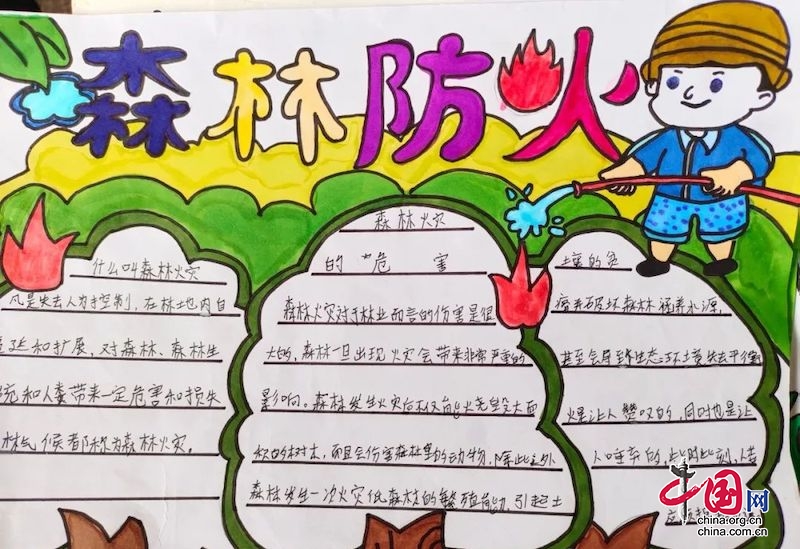 森林防火
什么叫森林火灾
凡是失去人为控制，在林地内自
延和扩展，对森林、森林生
统和人类带来一定危害和损失
林气候者都称为森林火灾。
森林火灾
的危害
森林火灾对于林业而言的伤害是很
大的，森林一旦出现火灾会带来非常严重的
影响。森林发生火灾后不仅能火尧坚大面
积的树木，而且会伤害森林里的动物，除此之外
森林发生一次火灾低森林的繁殖能力，引起土
壤的贫
瘠并破坏森林涵养水源，
甚至会导致生态环境失去平衡
火是让人赞叹的，同时也是让
人唾弃的，此时此刻，
中国网
china.org.cn
china.com.cn